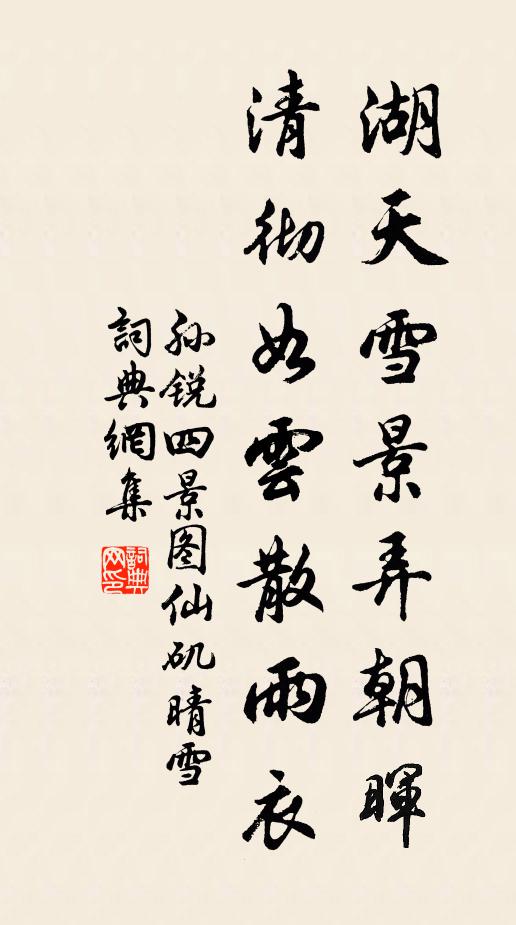 湖天雪景弄朝暉
清彻如雲散雨衣
孙锐四景图仙矶晴雪
詞典網集
詞典网印